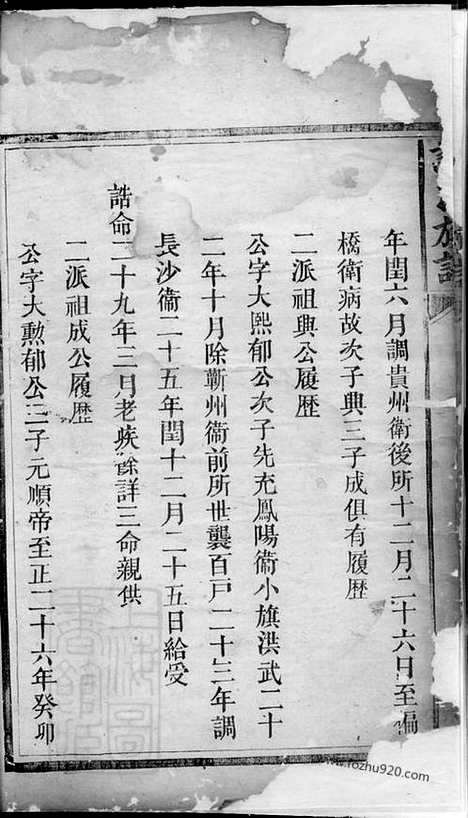 族譜
年閏六月調貴州衛後所十二月二十六日至偏
橋衛病故次子興三子成俱有履歷
二派祖興公履歷
公字大熙郁公次子先充鳳陽衞小旗洪武二十
二年十月除蘄州衞前所世襲百戶二十三年調
長沙衞二十五年閏十二月二十五日給受
誥命二十九年三月老疾餘詳三命親供
二派祖成公履歷
公字大勲郁公三子元順帝至正二十六年癸卯
www.rozhu920.com